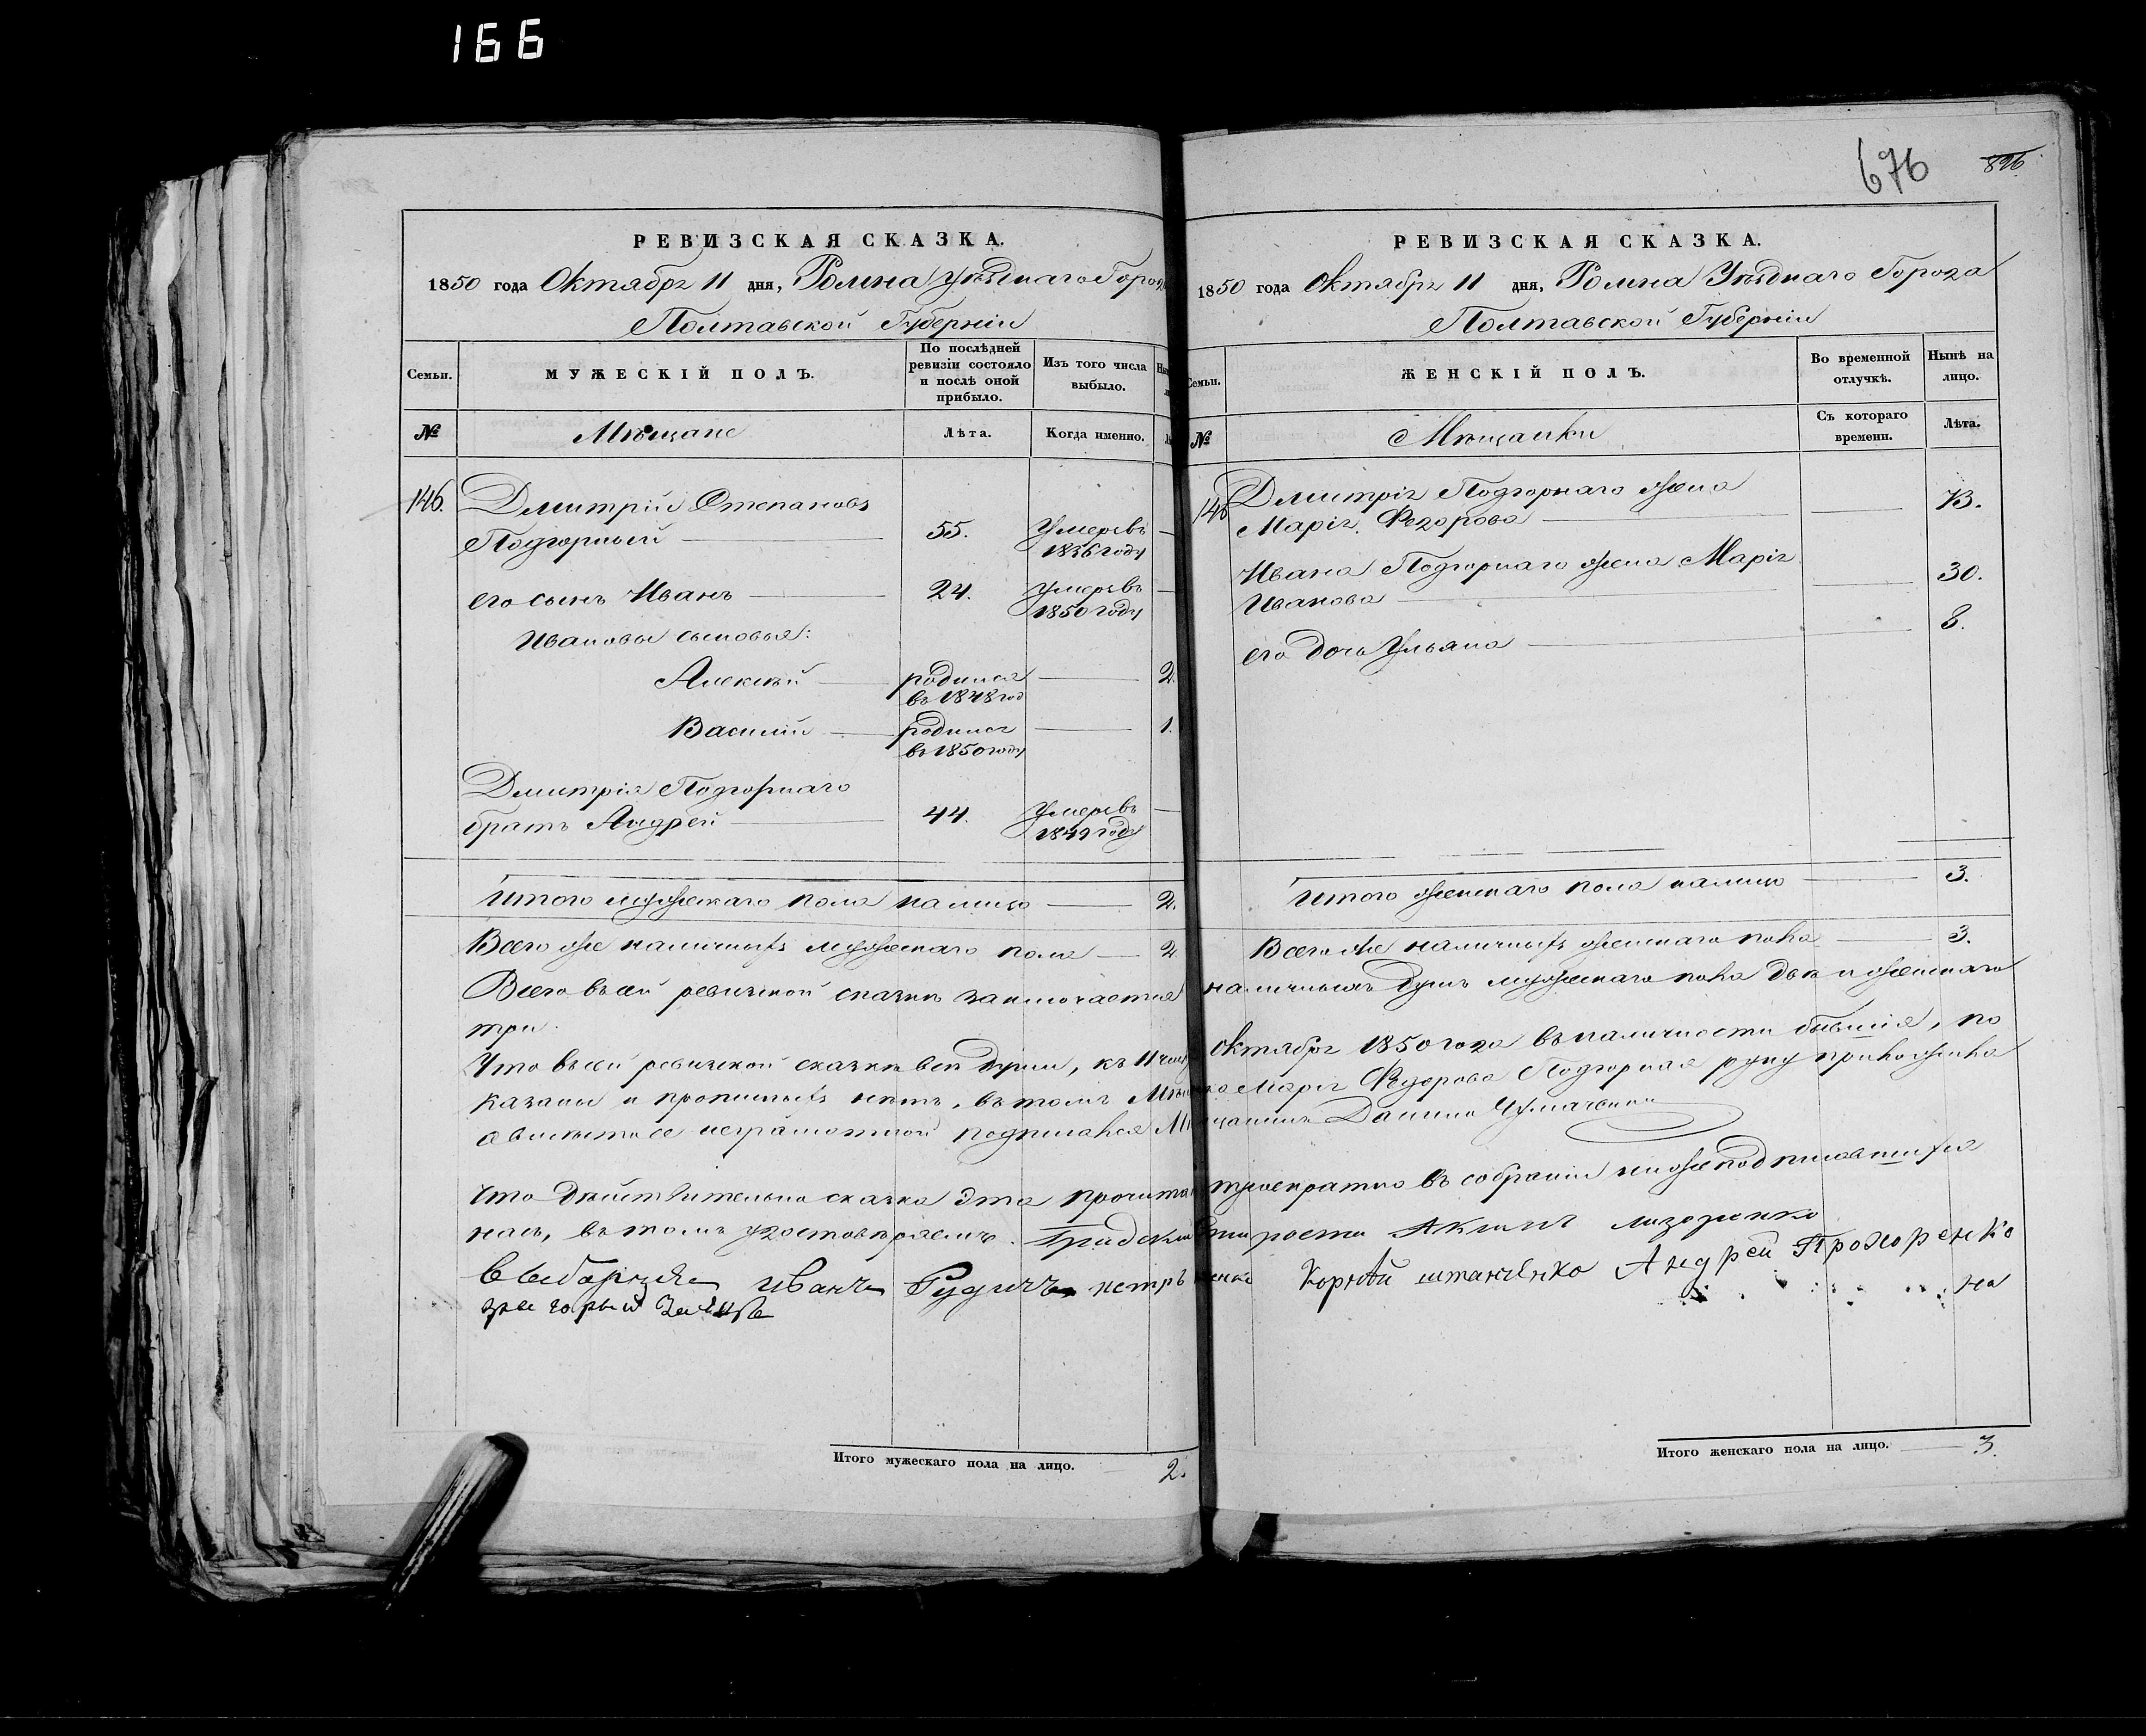 166
676
896
РЕВИЗСКАЯ СКАЗКА.
1850 года Октября 11 дня, Ромна Уѣзднаго Город
Полтавской Губерніи
Семьи.
МУЖЕСКІЙ ПОЛЪ.
По послѣдней ревизіи состояло и послѣ оной прибыло.
Изъ того числа выбыло.
№
Мѣщане
Лѣта.
Когда именно.
146.
Дмитрій Степановъ
Подгорный
55.
Умеръ въ 1836 году
его сынъ Иванъ
24.
Умеръ въ 1850 году
Ивановы сыновья:
Алексѣй
родился въ 1848 год
2.
Василий
родился въ 1850 году
1.
Дмитрія Подгорнаго
братъ Андрей
44.
Умеръ въ 1849 году
Итого мужескаго пола налицо
2.
Всего же наличныхъ мужескаго пола
2
Итого мужескаго пола на лицо.
2.
РЕВИЗСКАЯ СКАЗКА.
1850 года Октября 11 дня, Ромна Уѣзднаго Города
Полтавской Губерніи
Семьи.
ЖЕНСКІЙ ПОЛЪ.
Во временной отлучкѣ.
Нынѣ на лицо.
№
Мѣщанки
Съ котораго времени.
Лѣта.
146
Дмитрія Подгорнаго жена
Марія Федорова
73.
Ивана Подгорнаго жена Марія
Иванова
30.
его дочь Ульяна
8.
Итого женскаго пола налицо
3.
Всего же наличныхъ женскаго пола
3.
Всего въ сей ревизской сказкѣ заключается наличныхъ душъ мужескаго пола два и женскаго
три.
Что въ сей ревизской сказкѣ всѣ души, къ 11 числу Октября 1850 года въ наличности бывшія, по
казаны и прописныхъ нѣтъ, въ томъ Мѣщанка Марія Федорова Подгорная руку приложила
а вмѣсто ее неграмотной подписался Мѣщанинъ Данило
Что дѣйствительно сказка эта прочитана троекратно въ собраніи нижеподписавшихся
насъ, въ томъ удостовѣряемъ. Градскій староста Акимъ
Выборные Иванъ Рудичъ петръ Корнѣй штанченко Андрей Прохоренко
на
Итого женскаго пола на лицо.
3.